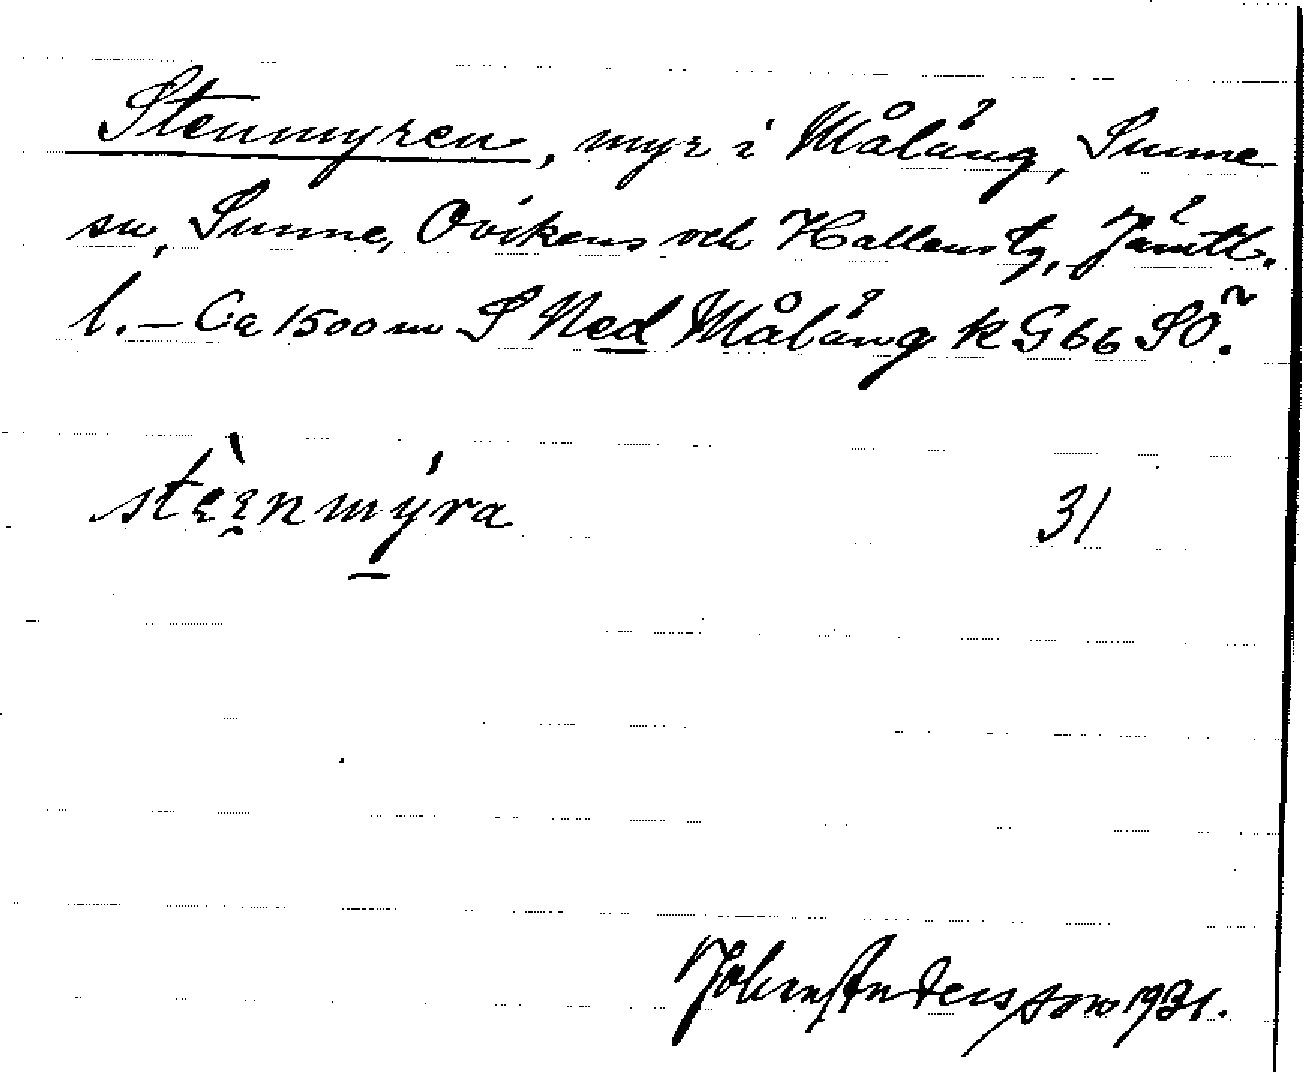 Stenmyren, myr i Målång, Sunne
sn, Sunne, Ovikens och Hallens tg, Jämtl.
l. – Ca 1500 m S Ned Målång k G 66 SÖ.
31
John Andersson 1931.